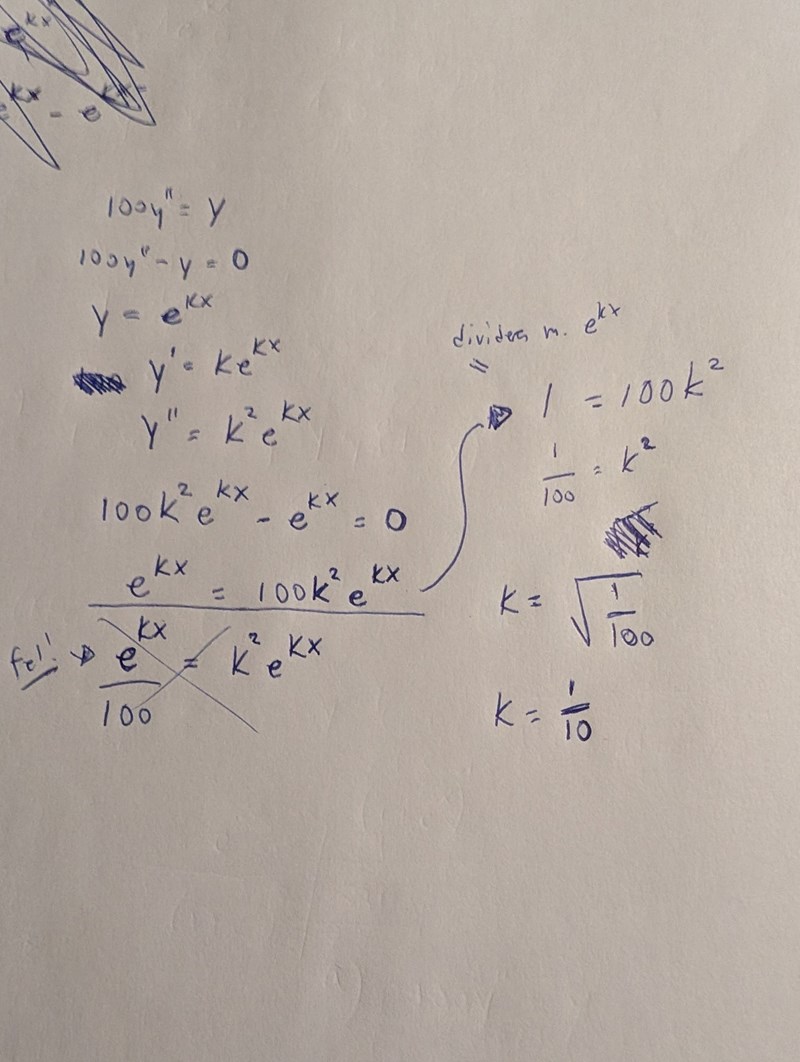 e^kx
e^kx - e
100y" = y
100y" - y = 0
y = e^kx
y' = ke^kx
y" = k²e^kx
100k²e^kx - e^kx = 0
e^kx = 100k²e^kx
fel! → e^kx/100 = k²e^kx
m. e^kx
1 = 100k²
1/100 = k²
k = √(1/100)
k = 1/10